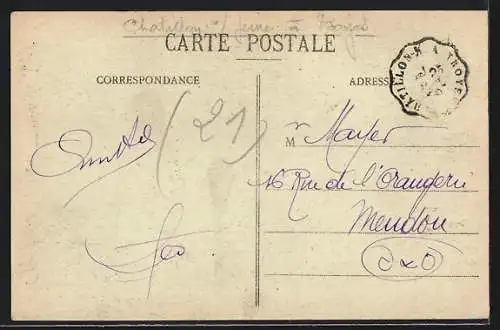 Chatillon s/ Seine à Troyes
CARTE POSTALE
CORRESPONDANCE
ADRESSE
CHATILLON-S A TROYES
(21)
M Mayer
16 Rue de l'Orangerie
Meudon
S&O